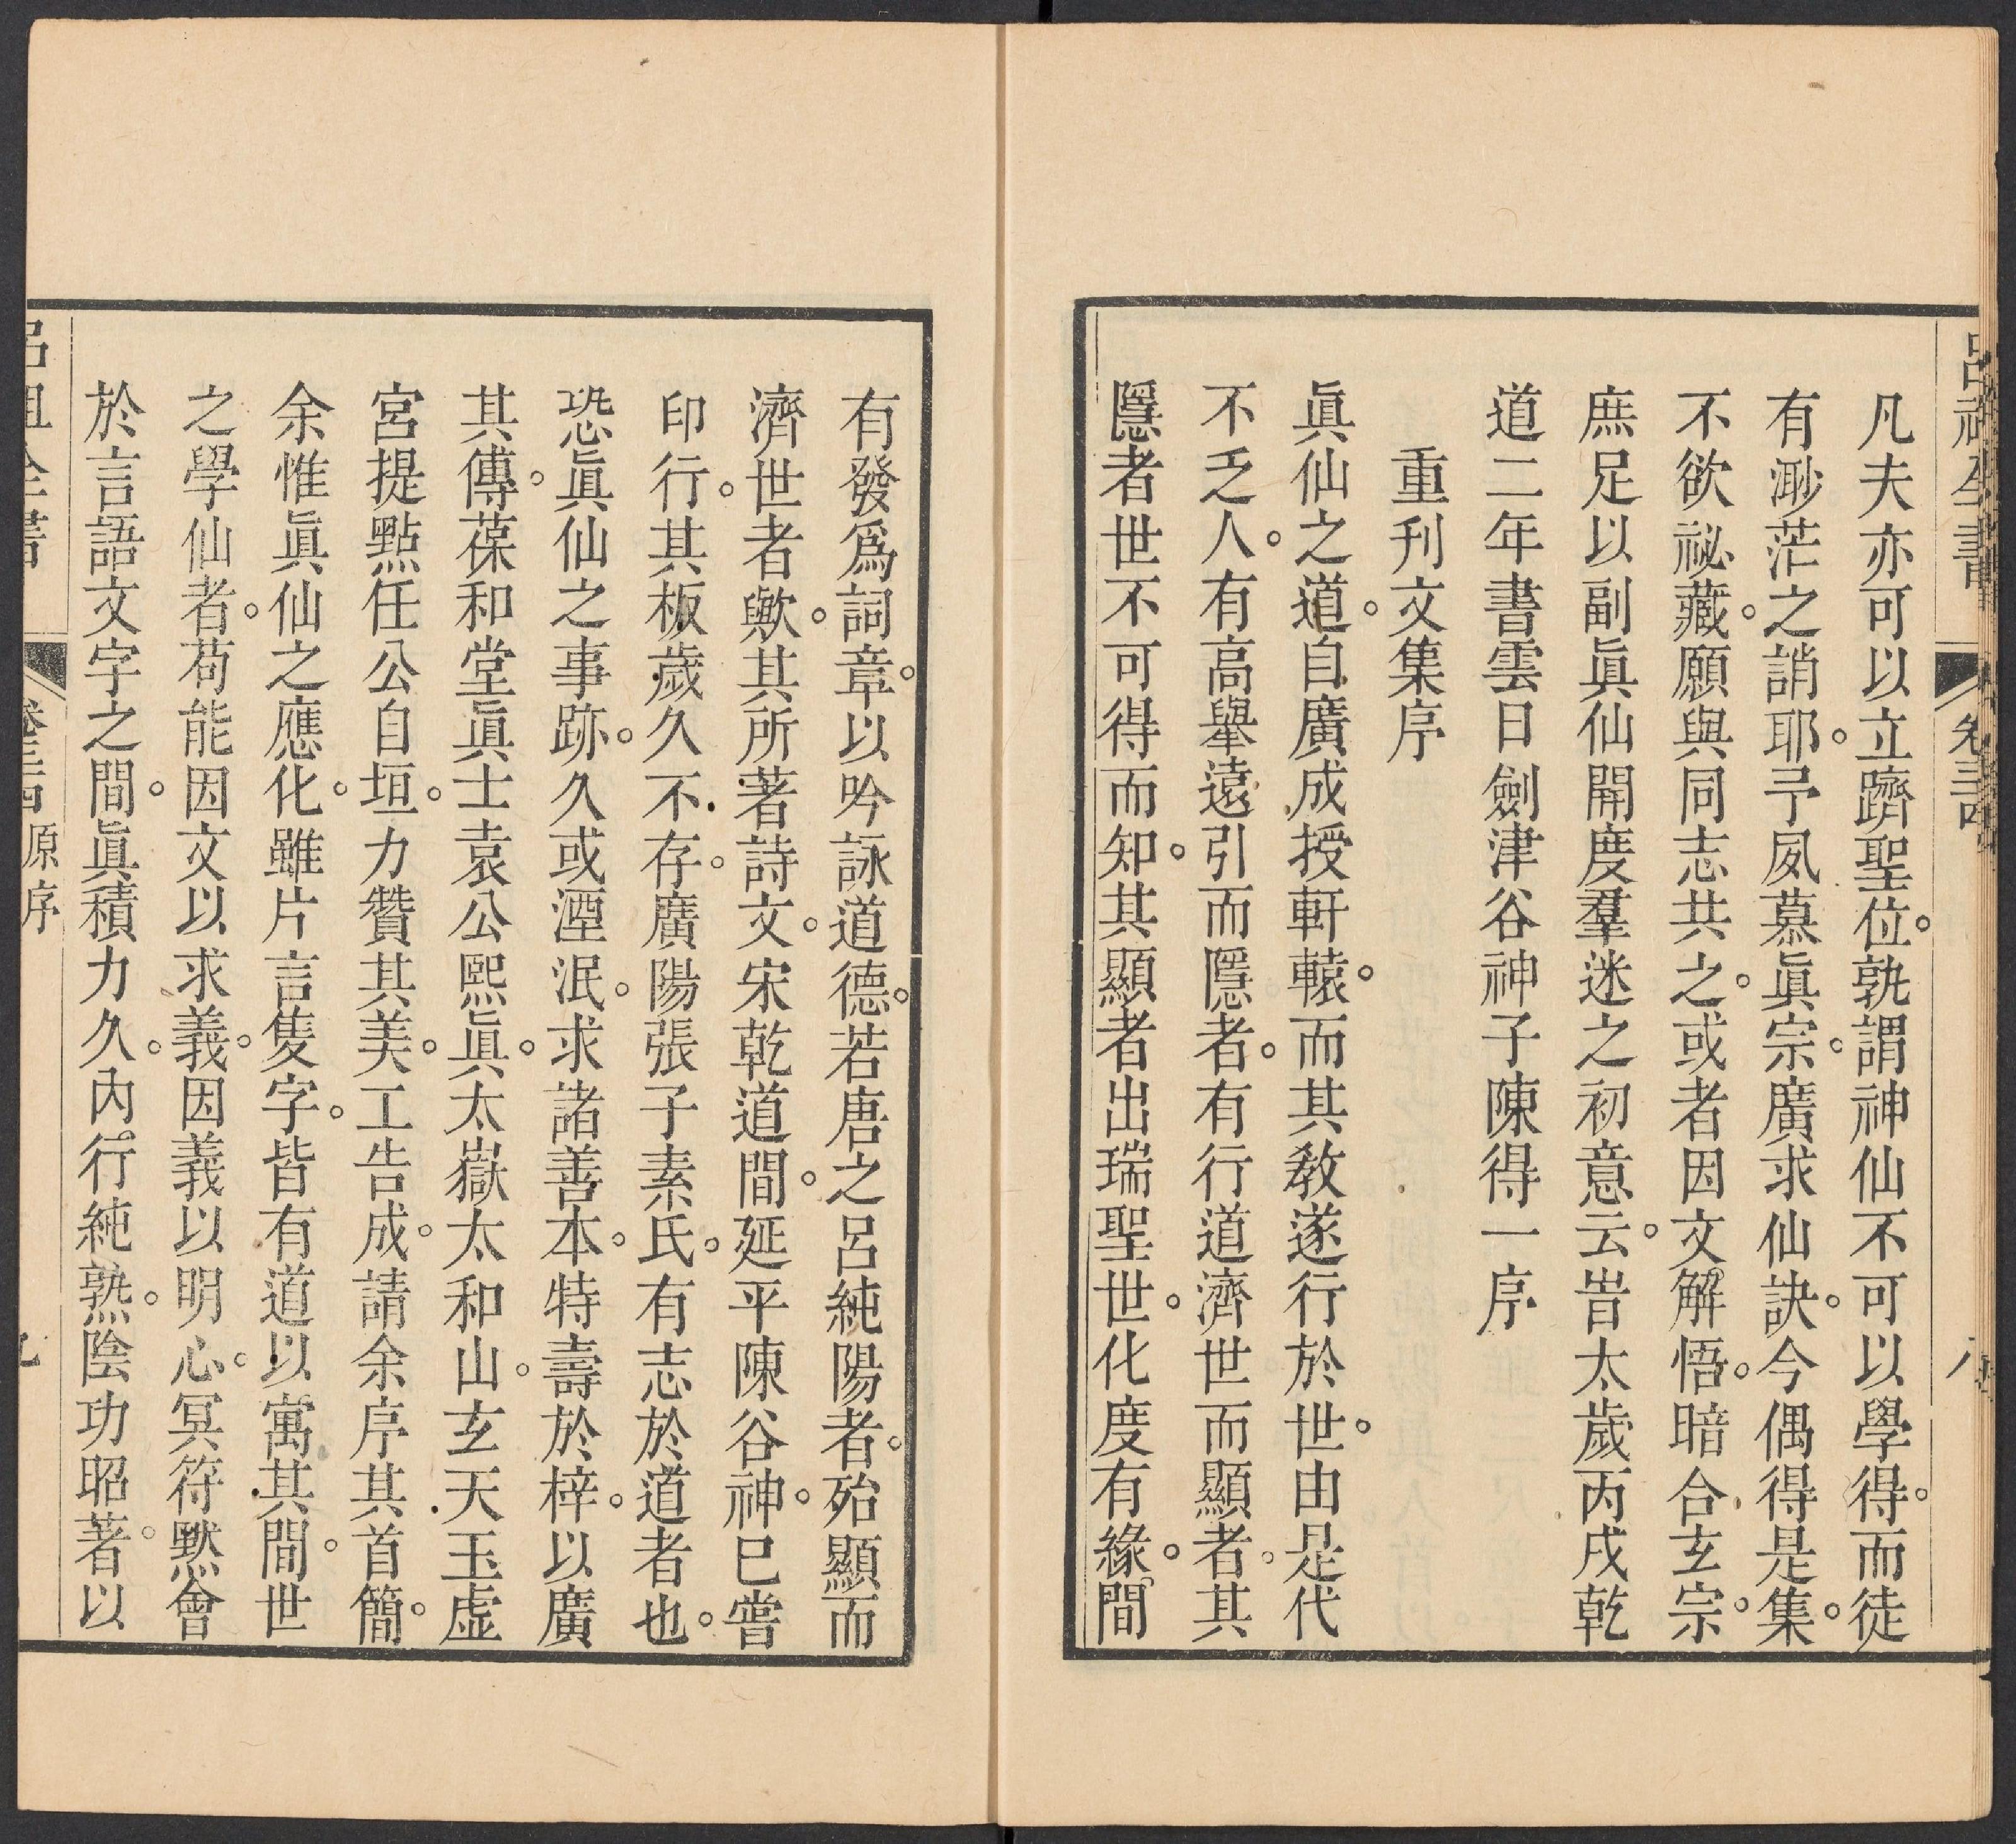 呂祖全書 卷三四 八
凡夫亦可以立躋聖位。孰謂神仙不可以學得。而徒
有渺茫之誚耶。予夙慕眞宗。廣求仙訣。今偶得是集。
不欲祕藏。願與同志共之。或者因文解悟。暗合玄宗。
庶足以副眞仙開度羣迷之初意云。旹太歲丙戌乾
道二年書雲日劍津谷神子陳得一序
重刊文集序
眞仙之道。自廣成授軒轅。而其敎遂行於世。由是代
不乏人。有高舉遠引而隱者。有行道濟世而顯者。其
隱者世不可得而知。其顯者出瑞聖世。化度有緣。間
有發爲詞章。以吟詠道德。若唐之呂純陽者。殆顯而
濟世者歟。其所著詩文。宋乾道間。延平陳谷神。巳嘗
印行。其板歲久不存。廣陽張子素氏。有志於道者也。
恐眞仙之事跡。久或湮泯。求諸善本。特壽於梓。以廣
其傳。葆和堂眞士袁公熙眞。太嶽太和山。玄天玉虛
宮提點任公自垣。力贊其美。工告成。請余序其首簡。
余惟眞仙之應化。雖片言隻字。皆有道以寓其間。世
之學仙者。苟能因文以求義。因義以明心。冥符默會
於言語文字之間。眞積力久。內行純熟。陰功昭著。以
呂祖全書 卷三四原序 九